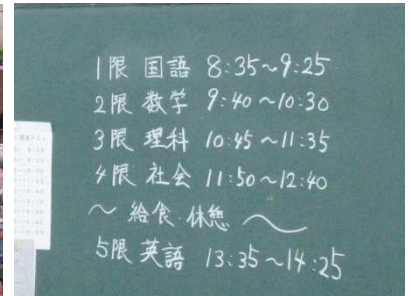 1限 国語 8:35~9:25
2限 数学 9:40~10:30
3限 理科 10:45~11:35
4限 社会 11:50~12:40
~ 給食・休憩 ~
5限 英語 13:35~14:25